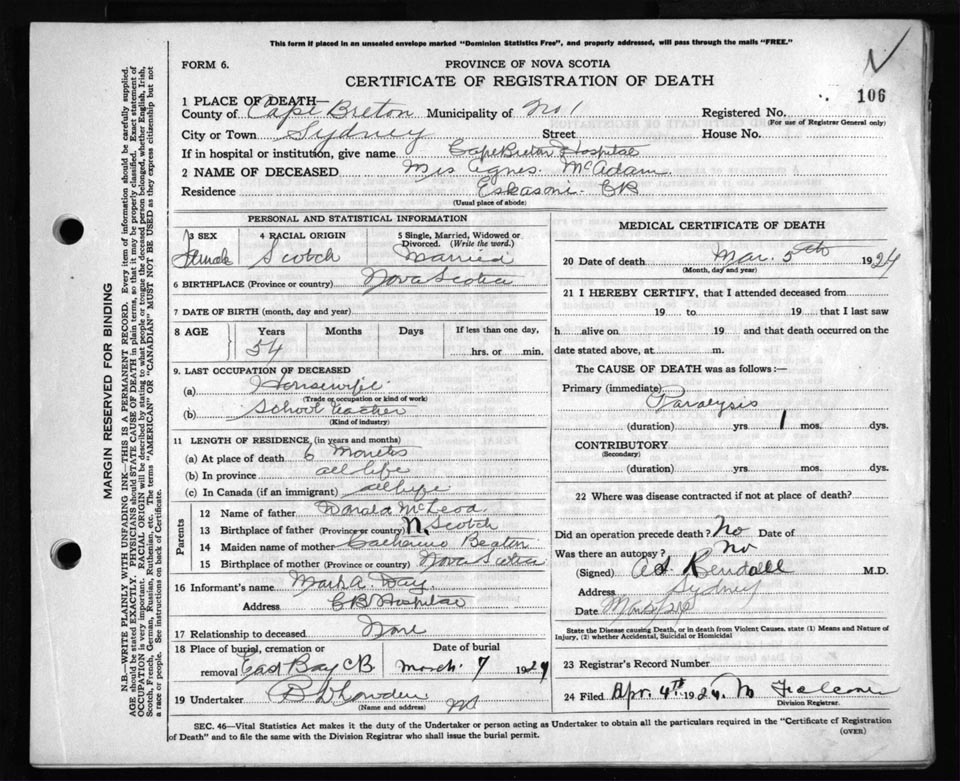 This form if placed in an unsealed envelope marked "Dominion Statistics Free", and properly addressed, will pass through the mails "FREE."
FORM 6.
PROVINCE OF NOVA SCOTIA
CERTIFICATE OF REGISTRATION OF DEATH
106
1 PLACE OF DEATH—
County of Cape Breton Municipality of No 1 Registered No.
(For use of Registrar General only)
City or Town Sydney Street House No.
If in hospital or institution, give name Cape Breton Hospital
2 NAME OF DECEASED Mrs Agnes. McAdam
Residence Eskasoni. CB
(Usual place of abode)
PERSONAL AND STATISTICAL INFORMATION
3 SEX 4 RACIAL ORIGIN 5 Single, Married, Widowed or Divorced. (Write the word.)
Female Scotch Married
6 BIRTHPLACE (Province or country) Nova Scotia
7 DATE OF BIRTH (month, day and year)
8 AGE Years Months Days If less than one day,
54 hrs. or min.
9. LAST OCCUPATION OF DECEASED
(a) Housewife
(Trade or occupation or kind of work)
(b) School teacher
(Kind of industry)
11 LENGTH OF RESIDENCE, (in years and months)
(a) At place of death 6 Months
(b) In province all life
(c) In Canada (if an immigrant) all life
Parents
12 Name of father Donald McLeod
13 Birthplace of father (Province or country) N. Scotch
14 Maiden name of mother Catherine Beaton
15 Birthplace of mother (Province or country) Nova Scotia
16 Informant's name Day
Address CB Hospital
17 Relationship to deceased None
18 Place of burial, cremation or removal East Bay CB
Date of burial
March. 7 1924
19 Undertaker
(Name and address)
MEDICAL CERTIFICATE OF DEATH
20 Date of death Mar. 5th 1924
(Month, day and year)
21 I HEREBY CERTIFY, that I attended deceased from
19 to 19 that I last saw
h alive on 19 and that death occurred on
date stated above, at m.
The CAUSE OF DEATH was as follows:—
Primary (immediate)
Paralysis
(duration) yrs 1 mos. dys.
CONTRIBUTORY
(Secondary)
(duration) yrs. mos. dys.
22 Where was disease contracted if not at place of death?
Did an operation precede death? No Date of
Was there an autopsy? No
(Signed) Kendall M.D.
Address Sydney
Date
State the Disease causing Death, or in death from Violent Causes, state (1) Means and Nature of
Injury, (2) whether Accidental, Suicidal or Homicidal
23 Registrar's Record Number
24 Filed Apr. 4th 1924
Division Registrar.
SEC. 46—Vital Statistics Act makes it the duty of the Undertaker or person acting as Undertaker to obtain all the particulars required in the "Certificate of Registration
of Death" and to file the same with the Division Registrar who shall issue the burial permit.
(OVER)
MARGIN RESERVED FOR BINDING
N.B.—WRITE PLAINLY WITH UNFADING INK—THIS IS A PERMANENT RECORD. Every item of information should be carefully supplied.
AGE should be stated EXACTLY. PHYSICIANS should STATE CAUSE OF DEATH in plain terms, so that it may be properly classified. Exact statement of
OCCUPATION is very important. RACIAL ORIGIN will be described by stating to what people or tongue the deceased person belonged, whether English, Irish,
Scotch, French, German, Russian, Ruthenian, etc. The terms "AMERICAN" OR "CANADIAN" MUST NOT BE USED as they express citizenship but not
a race or people. See instructions on back of Certificate.